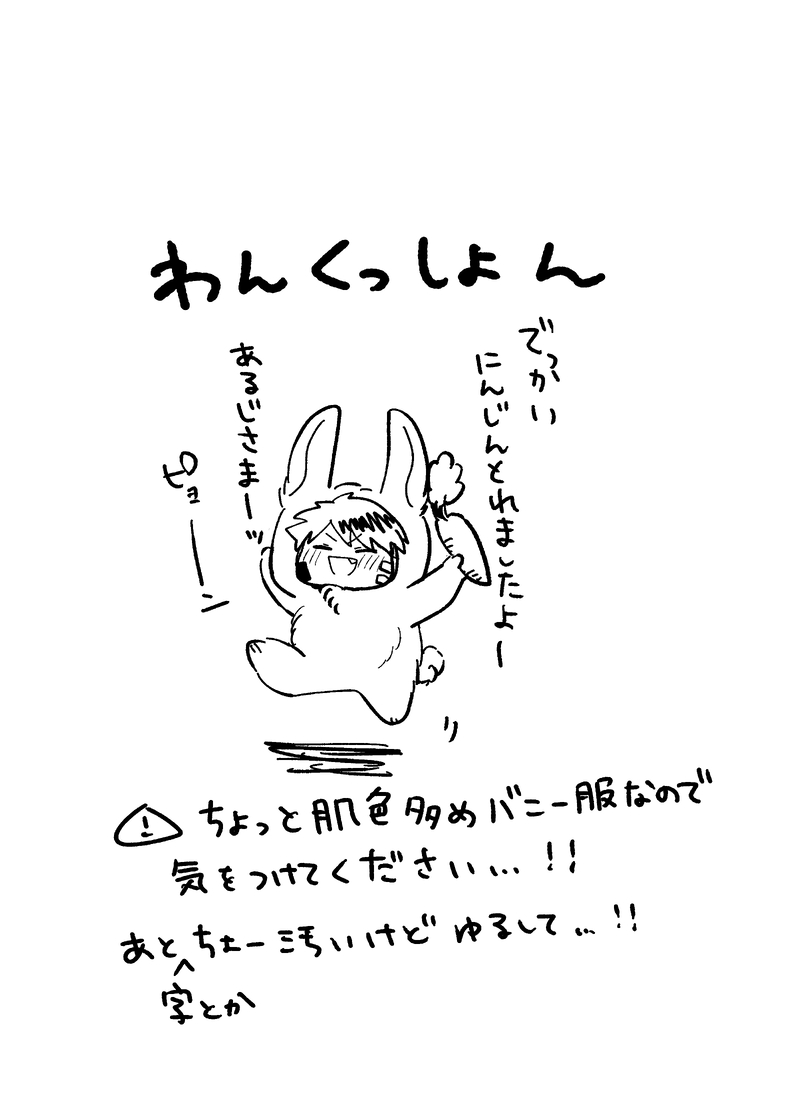 わんくっしょん
でっかい
にんじんとれましたよー
あるじさまーッ
ピョーン
! ちょっと肌色多めバニー服なので
気をつけてください…!!
あと、ちょー汚いけどゆるして…!!
字とか